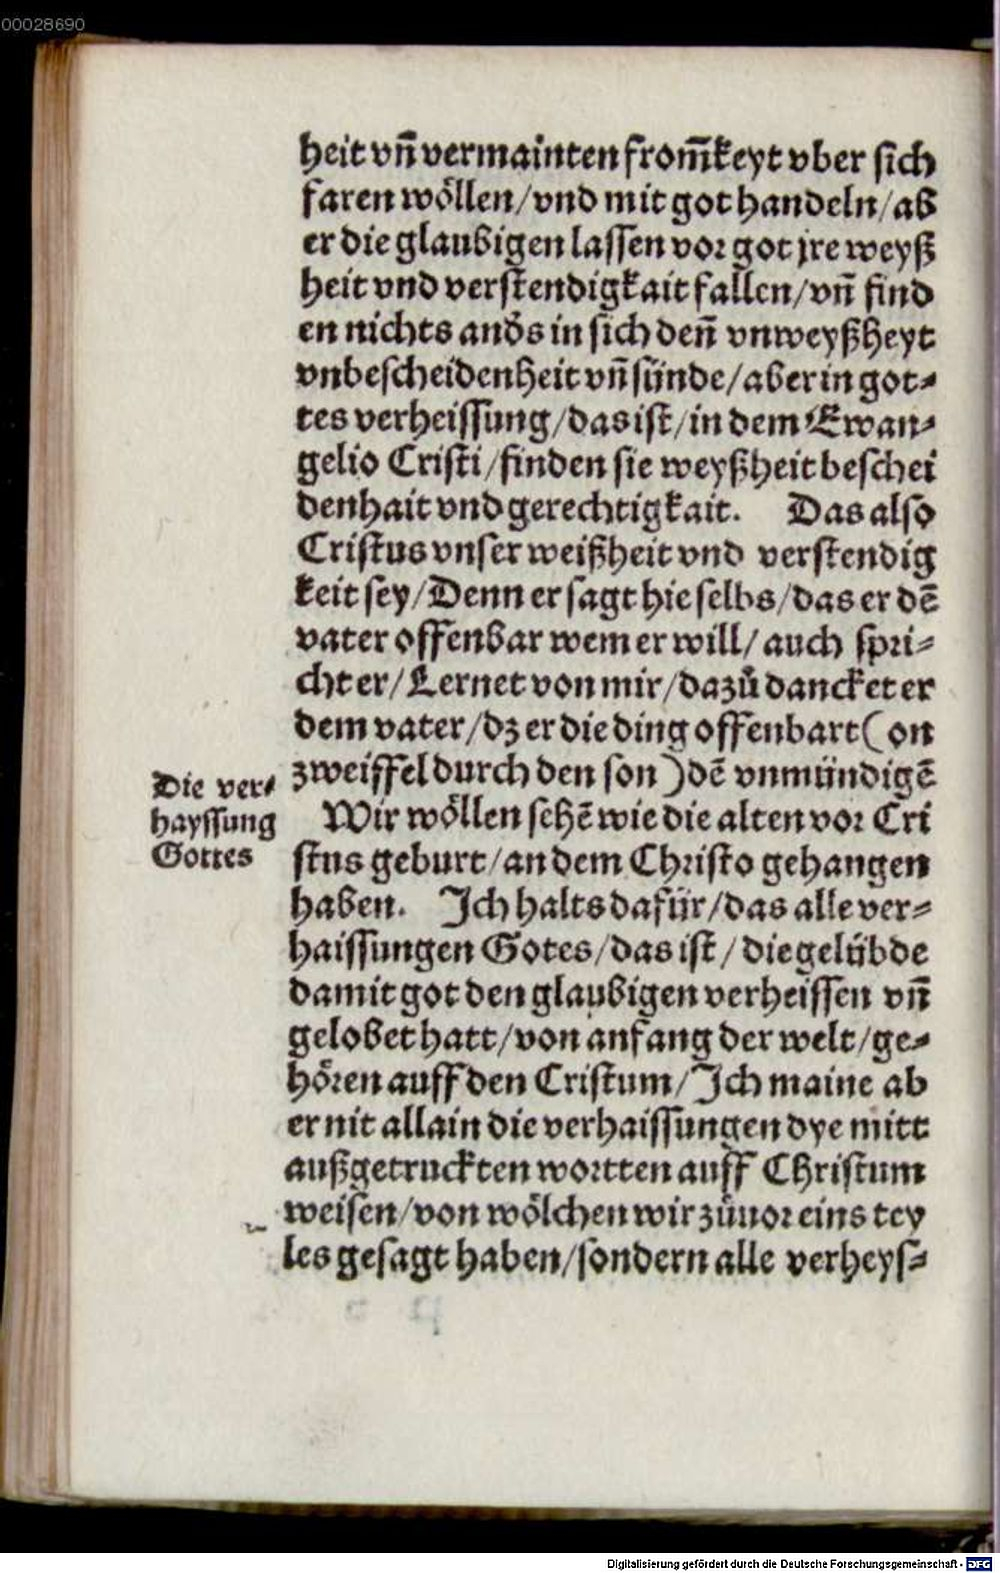 00028690
heit vñ vermainten from̃keyt vber sich
faren wöllen/vnd mit got handeln/ab
er die glaubigen lassen vor got jre weyß
heit vnd verstendigkait fallen/vñ find
en nichts anďs in sich deñ vnweyßheyt
vnbescheidenheit vñ sünde/aber in got⸗
tes verheissung/das ist/in dem Ewan⸗
gelio Cristi/finden sie weyßheit beschei
denhait vnd gerechtigkait. Das also
Cristus vnser weißheit vnd verstendig
keit sey/Denn er sagt hie selbs/das er dẽ
vater offenbar wem er will/auch spri⸗
cht er/Lernet von mir/dazů dancket er
dem vater/dz er die ding offenbart(on
zweiffel durch den son)dẽ vnmündigẽ
Die ver⸗
hayssung
Gottes
Wir wöllen sehẽ wie die alten vor Cri
stus geburt/an dem Christo gehangen
haben. Ich halts dafür/das alle ver⸗
haissungen Gotes/das ist/die gelübde
damit got den glaubigen verheissen vñ
gelobet hatt/von anfang der welt/ge⸗
hören auff den Cristum/Ich maine ab
er nit allain die verhaissungen dye mitt
außgetruckten wortten auff Christum
weisen/von wölchen wir zůuor eins tey
les gesagt haben/sondern alle verheys⸗
Digitalisierung gefördert durch die Deutsche Forschungsgemeinschaft - DFG